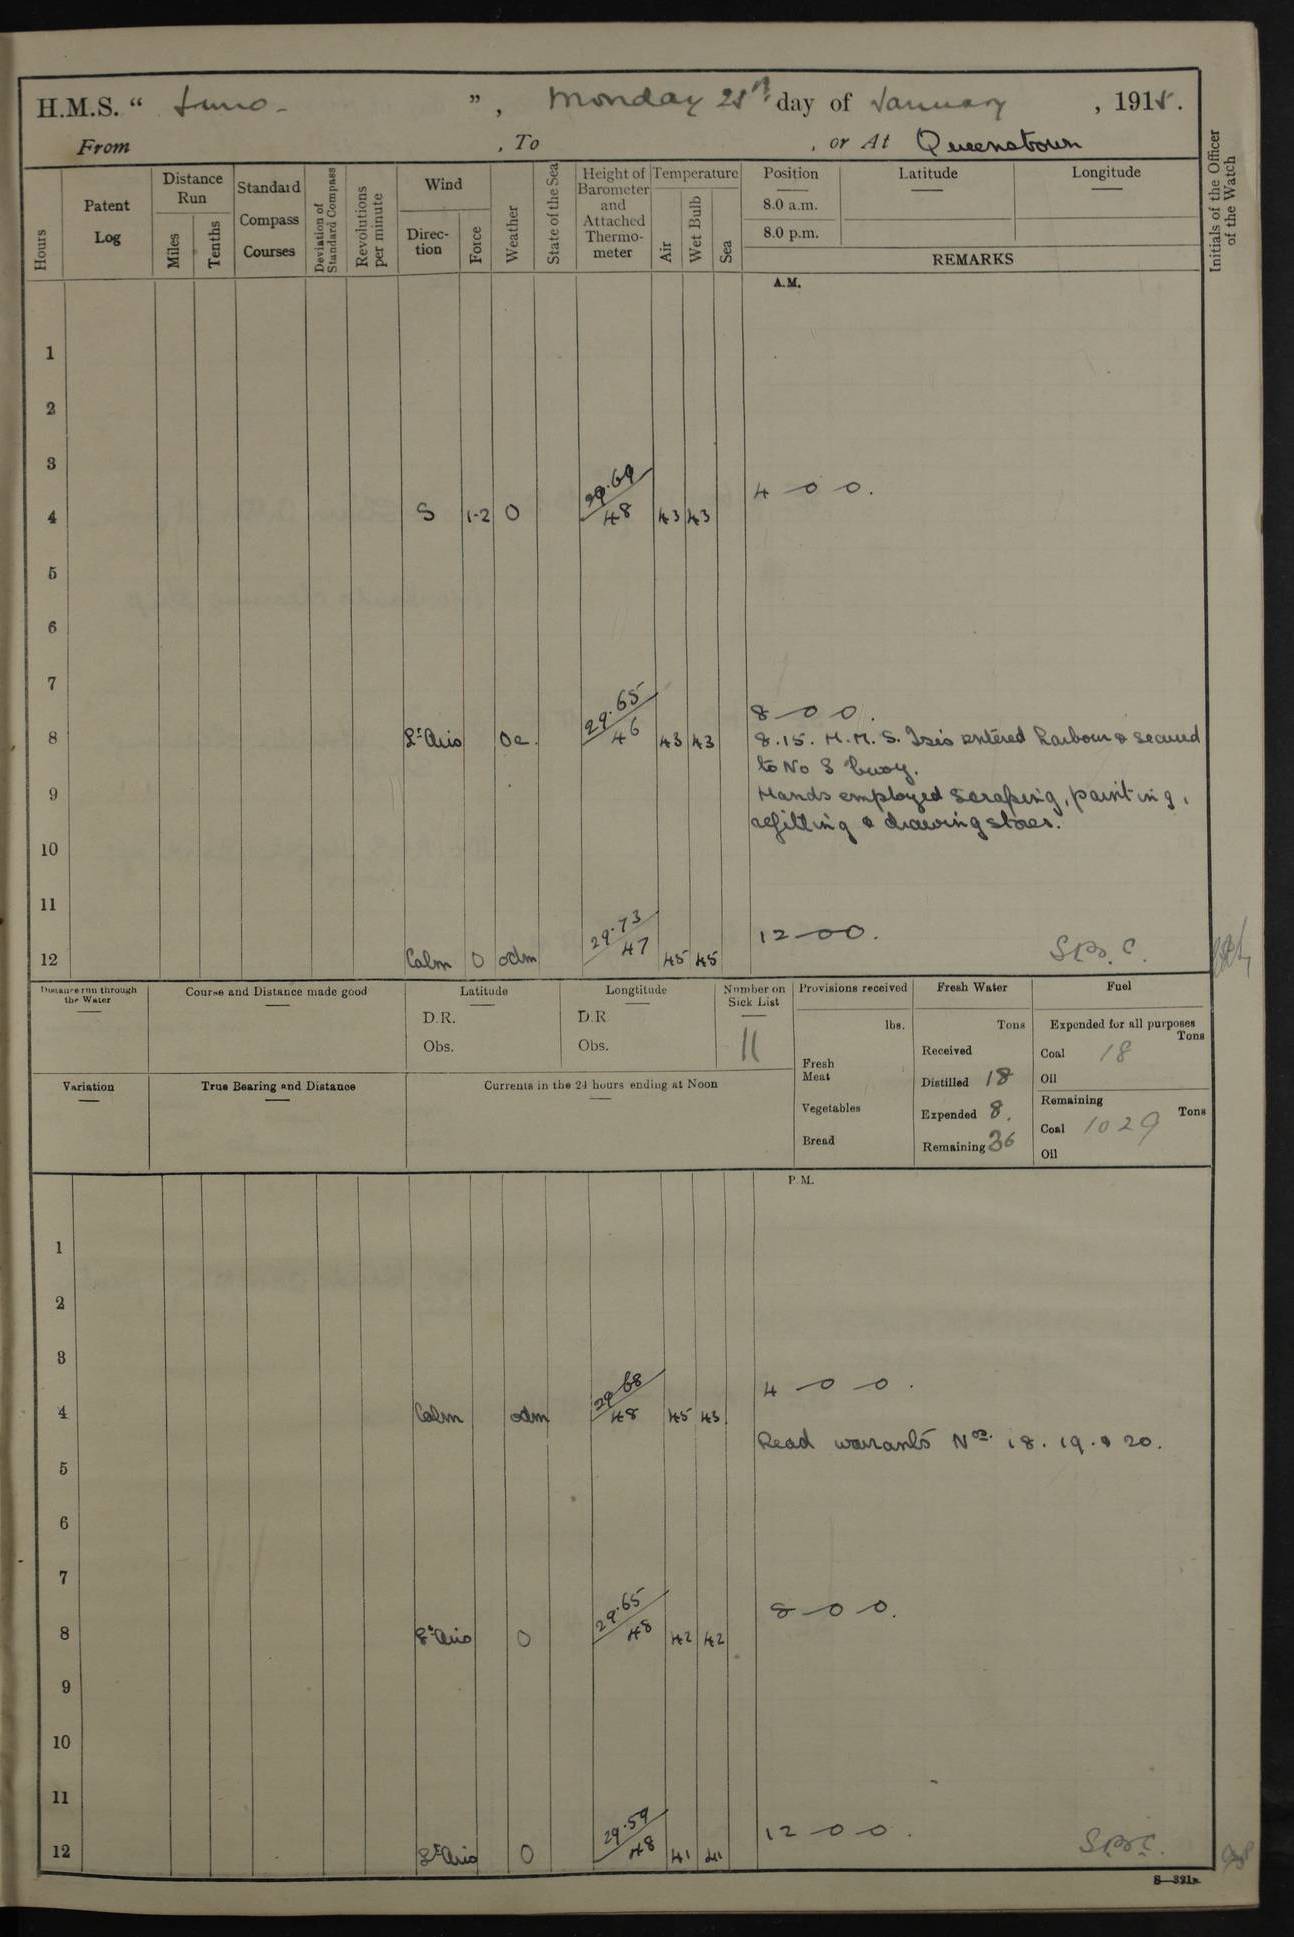 H.M.S. " Juno - ", Monday 25th day of January, 1915.
From , To , or At Queenstown
Hours
Patent Log
Distance Run
Miles
Tenths
Standard Compass Courses
Deviation of Standard Compass
Revolutions per minute
Wind
Direc-tion
Force
Weather
State of the Sea
Height of Barometer and Attached Thermo-meter
Temperature
Air
Wet Bulb
Sea
Position
8.0 a.m.
8.0 p.m.
Latitude
Longitude
REMARKS
Initials of the Officer of the Watch
A.M.
1
2
3
4 S 1-2 O 29.69 48 43 43 4 - 0 0.
5
6
7
8 Lt Airs Oc. 29.65 46 43 43 8 - 0 0.
8.15. H.M.S. Isis entered harbour & secured
to No 3 buoy.
9 Hands employed scraping, painting,
refitting & drawing stores.
10
11
12 Calm 0 odm 29.73 47 45 45 12 - 00. S.B.C.
Distance run through the Water
Course and Distance made good
Latitude
D.R.
Obs.
Longtitude
D.R
Obs.
Number on Sick List
11
Provisions received
lbs.
Fresh Meat
Vegetables
Bread
Fresh Water
Tons
Received
Distilled 18
Expended 8.
Remaining 36
Fuel
Expended for all purposes
Tons
Coal 18
Oil
Remaining
Tons
Coal 1029
Oil
Variation
True Bearing and Distance
Currents in the 24 hours ending at Noon
P.M.
1
2
3
4 Calm odm 29.68 48 45 43 4 - 0 0.
Read warrants Nos. 18. 19. & 20.
5
6
7
8 Lt Airs O 29.65 48 42 42 8 - 0 0.
9
10
11
12 Lt Airs O 29.59 48 41 41 12 - 0 0. S.B.C.
S—321a